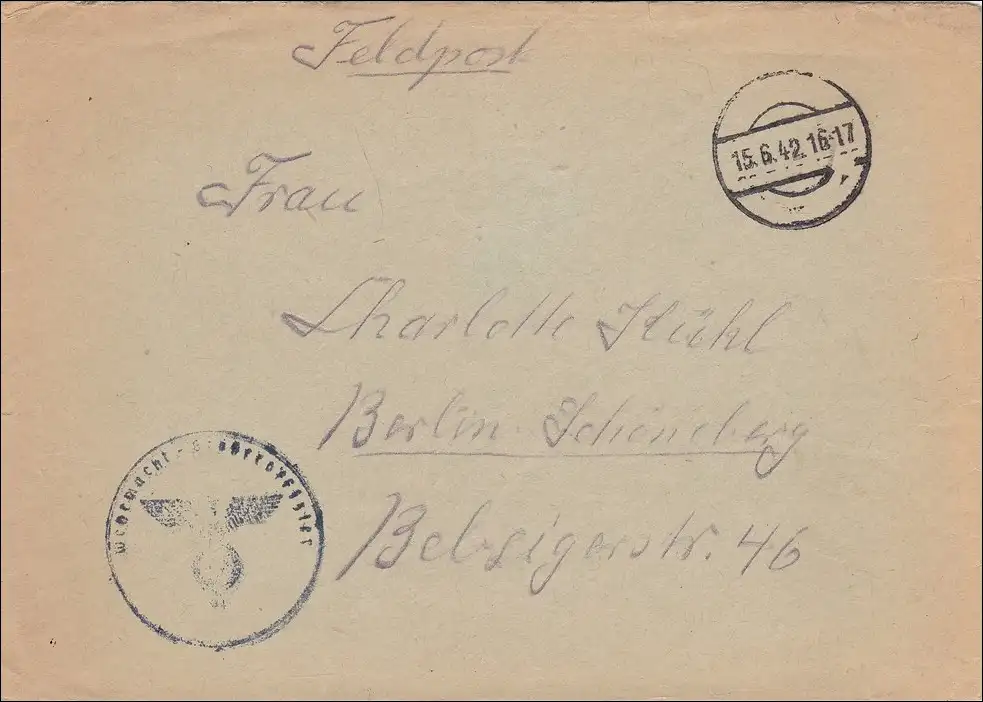 Feldpost
15.6.42.16-17
Frau
Charlotte Kühl
Berlin Schöneberg
Belzigerstr. 46
Wehrmacht -